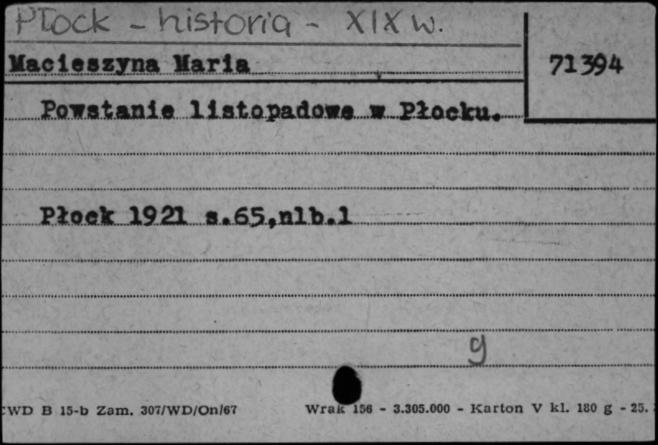 Płock - historia - XIX w.
Macieszyna Maria
71394
Powstanie listopadowe w Płocku.
Płock 1921 s.65,nlb.1
g
CWD B 15-b Zam. 307/WD/On/67 Wrak 156 - 3.305.000 - Karton V kl. 180 g - 25.